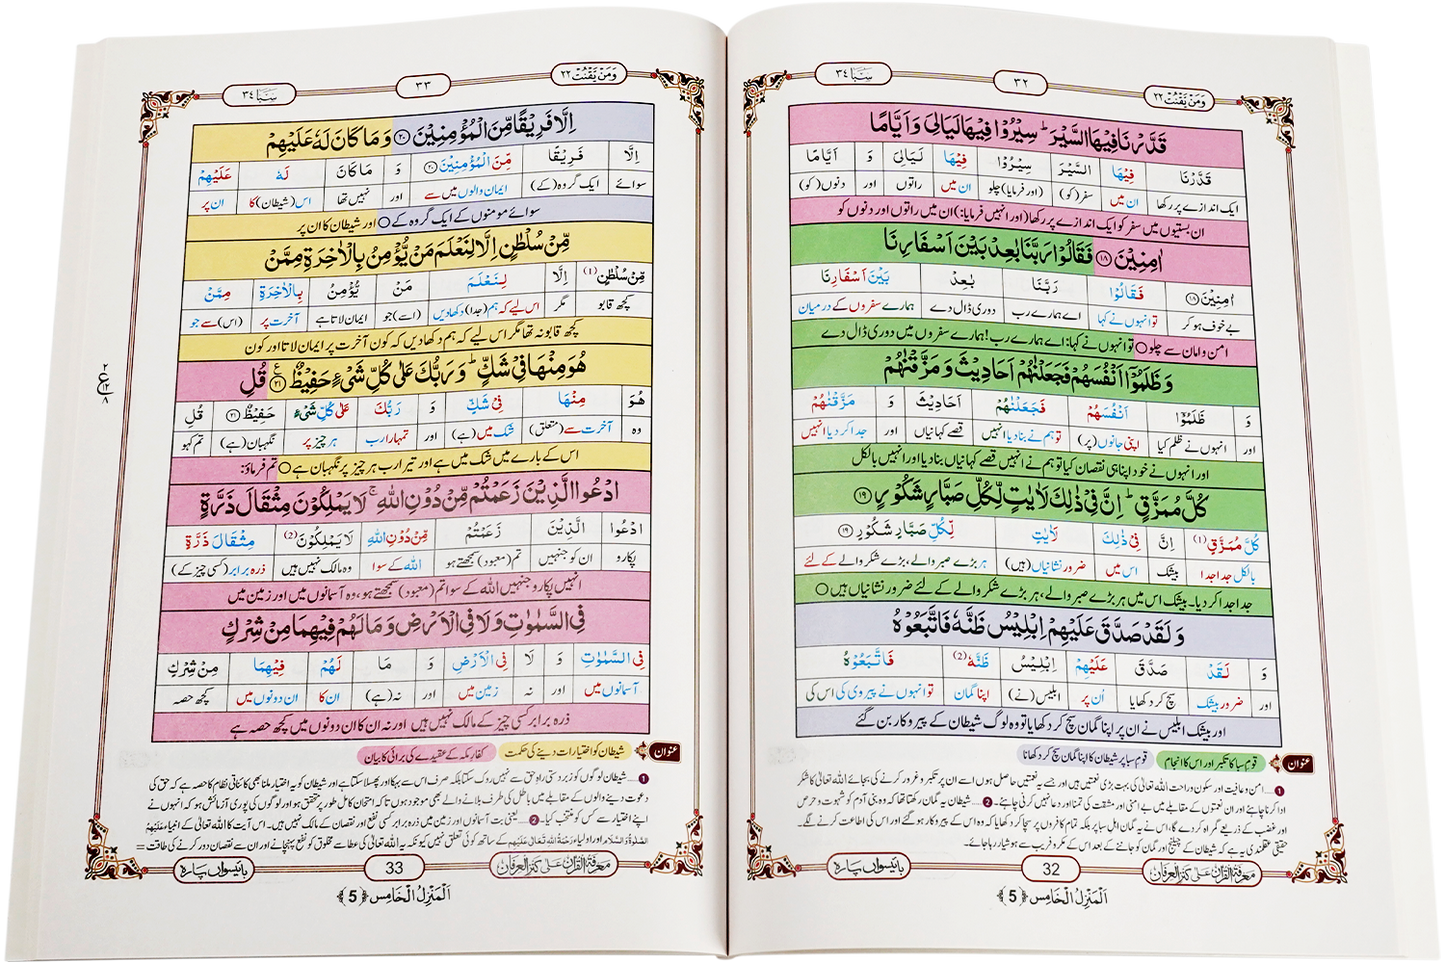 وَمَنْ يَّقْنُتْ ٢٢
٣٢
سَبَا ٣٤
قَدَّرْنَا فِيْهَا السَّيْرَ ؕ سِيْرُوْا فِيْهَا لَيَالِيَ وَ اَيَّامًا
قَدَّرْنَا فِيْهَا السَّيْرَ سِيْرُوْا فِيْهَا لَيَالِيَ وَ اَيَّامًا
ایک اندازے پر رکھا ان میں سفر (کو) (اور فرمایا) چلو ان میں راتوں اور دنوں (کو)
ان بستیوں میں سفر کو ایک اندازے پر رکھا (اور انہیں فرمایا:) ان میں راتوں اور دنوں کو
اٰمِنِيْنَ ﴿١٨﴾ فَقَالُوْا رَبَّنَا بٰعِدْ بَيْنَ اَسْفَارِنَا
اٰمِنِيْنَ ﴿١٨﴾ فَقَالُوْا رَبَّنَا بٰعِدْ بَيْنَ اَسْفَارِنَا
بے خوف ہو کر تو انہوں نے کہا اے ہمارے رب دوری ڈال دے ہمارے سفروں کے درمیان
امن و امان سے چلو ○ تو انہوں نے کہا: اے ہمارے رب! ہمارے سفروں میں دوری ڈال دے
وَ ظَلَمُوْۤا اَنْفُسَهُمْ فَجَعَلْنٰهُمْ اَحَادِيْثَ وَ مَزَّقْنٰهُمْ
وَ ظَلَمُوْۤا اَنْفُسَهُمْ فَجَعَلْنٰهُمْ اَحَادِيْثَ وَ مَزَّقْنٰهُمْ
اور انہوں نے ظلم کیا اپنی جانوں (پر) تو ہم نے بنا دیا انہیں قصے کہانیاں اور جدا کر دیا انہیں
اور انہوں نے خود اپنا ہی نقصان کیا تو ہم نے انہیں قصے کہانیاں بنا دیا اور انہیں بالکل
كُلَّ مُمَزَّقٍ ؕ اِنَّ فِيْ ذٰلِكَ لَاٰيٰتٍ لِّكُلِّ صَبَّارٍ شَكُوْرٍ ﴿١٩﴾
كُلَّ مُمَزَّقٍ (1) اِنَّ فِيْ ذٰلِكَ لَاٰيٰتٍ لِّكُلِّ صَبَّارٍ شَكُوْرٍ ﴿١٩﴾
بالکل جدا جدا بیشک اس میں ضرور نشانیاں (ہیں) ہر بڑے صبر والے، بڑے شکر والے کے لئے
جدا جدا کر دیا۔ بیشک اس میں ہر بڑے صبر والے، ہر بڑے شکر والے کے لئے ضرور نشانیاں ہیں ○
وَ لَقَدْ صَدَّقَ عَلَيْهِمْ اِبْلِيْسُ ظَنَّهٗ فَاتَّبَعُوْهُ
وَ لَقَدْ صَدَّقَ عَلَيْهِمْ اِبْلِيْسُ ظَنَّهٗ (2) فَاتَّبَعُوْهُ
اور ضرور بیشک سچ کر دکھایا اُن پر ابلیس (نے) اپنا گمان تو انہوں نے پیروی کی اس کی
اور بیشک ابلیس نے ان پر اپنا گمان سچ کر دکھایا تو وہ لوگ شیطان کے پیروکار بن گئے
عنوان قومِ سبا کا تکبر اور اس کا انجام قومِ سبا پر شیطان کا اپنا گمان سچ کر دکھانا
1 ... امن و عافیت اور سکون و راحت اللہ تعالیٰ کی بہت بڑی نعمتیں ہیں اور جسے یہ نعمتیں حاصل ہوں اسے ان پر تکبر و غرور کرنے کی بجائے اللہ تعالیٰ کا شکر
ادا کرنا چاہئے اور ان نعمتوں کے مقابلے میں بے امنی اور مشقت کی تمنا اور دعا نہیں کرنی چاہئے۔ 2 ... شیطان یہ گمان رکھتا تھا کہ وہ بنی آدم کو شہوت و حرص
اور غضب کے ذریعے گمراہ کر دے گا، اس نے یہ گمان اہلِ سبا پر بلکہ تمام کافروں پر سچا کر دکھایا کہ وہ اس کے پیروکار ہو گئے اور اس کی اطاعت کرنے لگے۔
حقیقی عقلمندی یہ ہے کہ شیطان کے چیلنج اور گمان کو جاننے کے بعد اس کے مکر و فریب سے ہوشیار رہا جائے۔
معرفۃ القرآن علی کنز العرفان
32
بائیسواں پارہ
اَلْمَنْزِلُ الْخَامِس ﴿5﴾
وَمَنْ يَّقْنُتْ ٢٢
٣٣
سَبَا ٣٤
اِلَّا فَرِيْقًا مِّنَ الْمُؤْمِنِيْنَ ﴿٢٠﴾ وَ مَا كَانَ لَهٗ عَلَيْهِمْ
اِلَّا فَرِيْقًا مِّنَ الْمُؤْمِنِيْنَ ﴿٢٠﴾ وَ مَا كَانَ لَهٗ عَلَيْهِمْ
سوائے ایک گروہ (کے) ایمان والوں میں سے اور نہیں تھا اس (شیطان) کا ان پر
سوائے مومنوں کے ایک گروہ کے ○ اور شیطان کا ان پر
مِّنْ سُلْطٰنٍ اِلَّا لِنَعْلَمَ مَنْ يُّؤْمِنُ بِالْاٰخِرَةِ مِمَّنْ
مِّنْ سُلْطٰنٍ (1) اِلَّا لِنَعْلَمَ مَنْ يُّؤْمِنُ بِالْاٰخِرَةِ مِمَّنْ
کچھ قابو مگر اس لیے کہ ہم (جدا) دکھا دیں (اسے) جو ایمان لاتا ہے آخرت پر (اس) سے جو
کچھ قابو نہ تھا مگر اس لیے کہ ہم دکھا دیں کہ کون آخرت پر ایمان لاتا اور کون
هُوَ مِنْهَا فِيْ شَكٍّ ؕ وَ رَبُّكَ عَلٰى كُلِّ شَيْءٍ حَفِيْظٌ ﴿٢١﴾ قُلِ
هُوَ مِنْهَا فِيْ شَكٍّ وَ رَبُّكَ عَلٰى كُلِّ شَيْءٍ حَفِيْظٌ ﴿٢١﴾ قُلِ
وہ آخرت سے (متعلق) شک میں (ہے) اور تمہارا رب ہر چیز پر نگہبان (ہے) تم کہو
اس کے بارے میں شک میں ہے اور تیرا رب ہر چیز پر نگہبان ہے ○ تم فرماؤ:
ادْعُوا الَّذِيْنَ زَعَمْتُمْ مِّنْ دُوْنِ اللّٰهِ ۚ لَا يَمْلِكُوْنَ مِثْقَالَ ذَرَّةٍ
ادْعُوا الَّذِيْنَ زَعَمْتُمْ مِّنْ دُوْنِ اللّٰهِ لَا يَمْلِكُوْنَ (2) مِثْقَالَ ذَرَّةٍ
پکارو ان کو جنہیں تم (معبود) سمجھتے ہو اللہ کے سوا وہ مالک نہیں ہیں ذرہ برابر (کسی چیز کے)
انہیں پکارو جنہیں اللہ کے سوا تم (معبود) سمجھتے ہو، وہ آسمانوں میں اور زمین میں
فِي السَّمٰوٰتِ وَ لَا فِي الْاَرْضِ وَ مَا لَهُمْ فِيْهِمَا مِنْ شِرْكٍ
فِي السَّمٰوٰتِ وَ لَا فِي الْاَرْضِ وَ مَا لَهُمْ فِيْهِمَا مِنْ شِرْكٍ
آسمانوں میں اور نہ زمین میں اور نہ (ہے) ان کا ان دونوں میں کچھ حصہ
ذرہ برابر کسی چیز کے مالک نہیں ہیں اور نہ ان کا ان دونوں میں کچھ حصہ ہے
عنوان شیطان کو اختیارات دینے کی حکمت کفارِ مکہ کے عقیدے کی برائی کا بیان
1 ... شیطان لوگوں کو زبردستی راہِ حق سے نہیں روک سکتا بلکہ صرف اس سے بہکا اور پھسلا سکتا ہے اور شیطان کو یہ اختیار ملنا بھی کائناتی نظام کا حصہ ہے کہ حق کی
دعوت دینے والوں کے مقابلے میں باطل کی طرف بلانے والے بھی موجود ہوں تاکہ امتحان کامل طور پر متحقق ہو اور لوگوں کی پوری آزمائش ہو کہ انہوں نے
اپنے اختیار سے کس کو منتخب کیا۔ 2 ... یعنی بت آسمانوں اور زمین میں ذرہ برابر کسی نفع اور نقصان کے مالک نہیں ہیں۔ اس آیت کا اللہ تعالیٰ کے انبیاء عَلَيْهِمُ
الصَّلٰوةُ وَالسَّلَام اور اولیاء رَحْمَةُ اللهِ تَعَالٰى عَلَيْهِم کے ساتھ کوئی تعلق نہیں کیونکہ یہ اللہ تعالیٰ کی عطا سے مخلوق کو نفع پہنچانے اور ان سے نقصان دور کرنے کی طاقت =
معرفۃ القرآن علی کنز العرفان
33
بائیسواں پارہ
اَلْمَنْزِلُ الْخَامِس ﴿5﴾